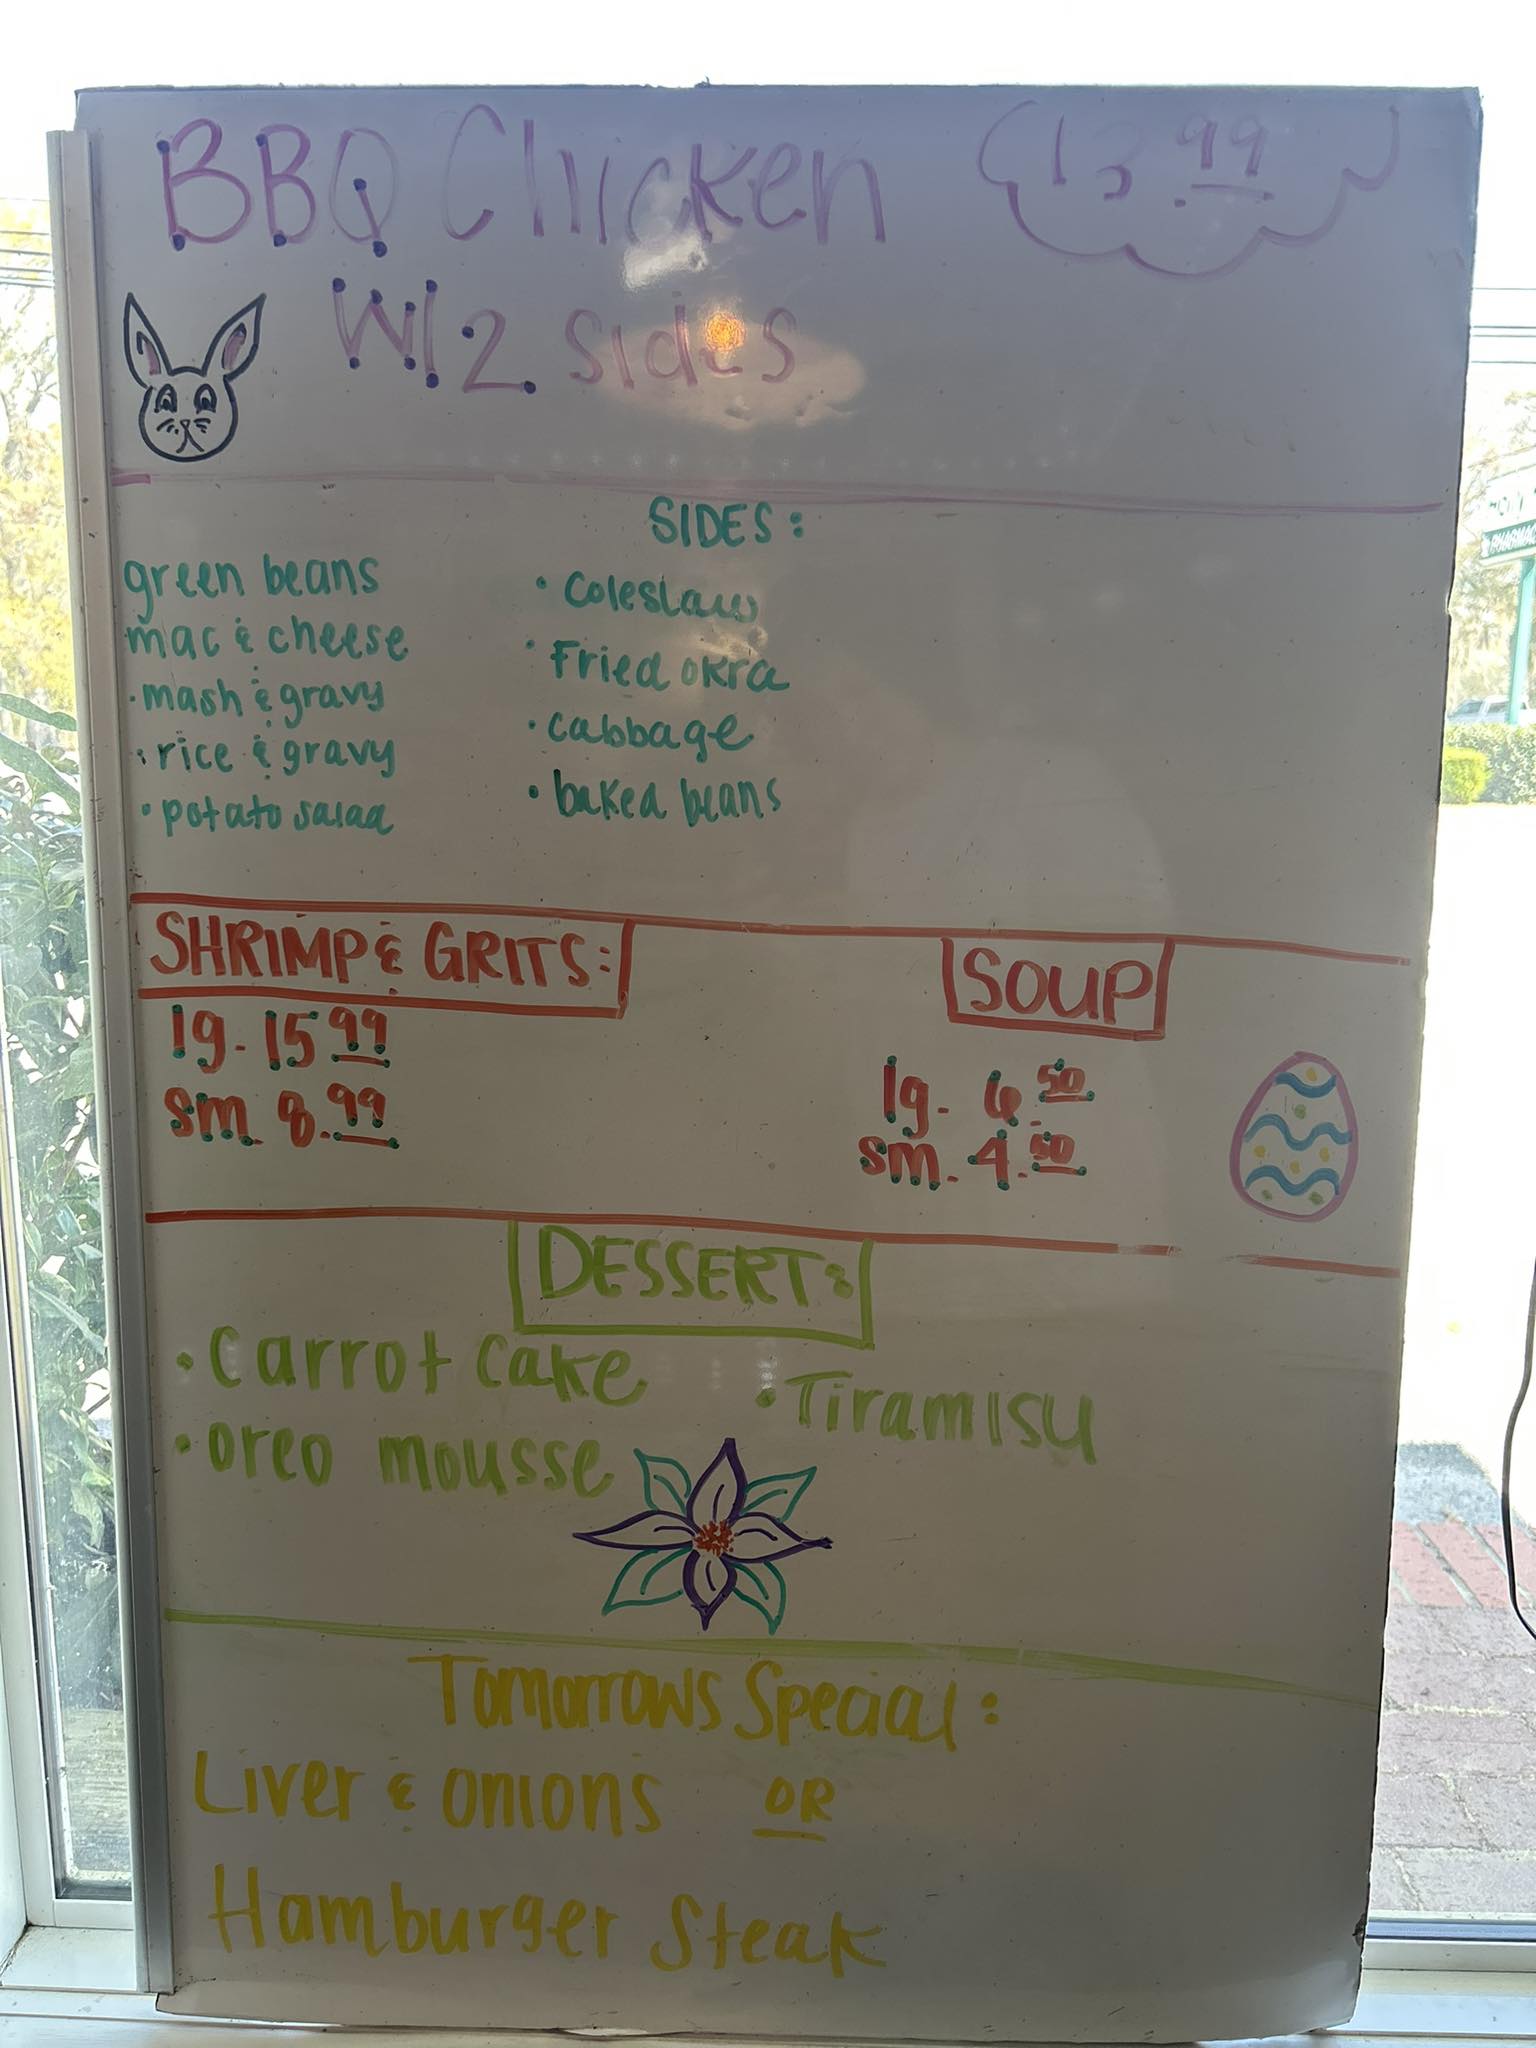 BBQ Chicken 13.99
W/ 2 sides
SIDES:
green beans
mac & cheese
· mash & gravy
· rice & gravy
· potato salad
· Coleslaw
· Fried okra
· cabbage
· baked beans
SHRIMP & GRITS:
lg. 15 99
sm. 8.99
SOUP
lg. 6.50
sm. 4.50
DESSERT:
· Carrot cake
· oreo mousse
· Tiramisu
Tomorrows Special:
Liver & onions OR
Hamburger Steak
PHARMAC